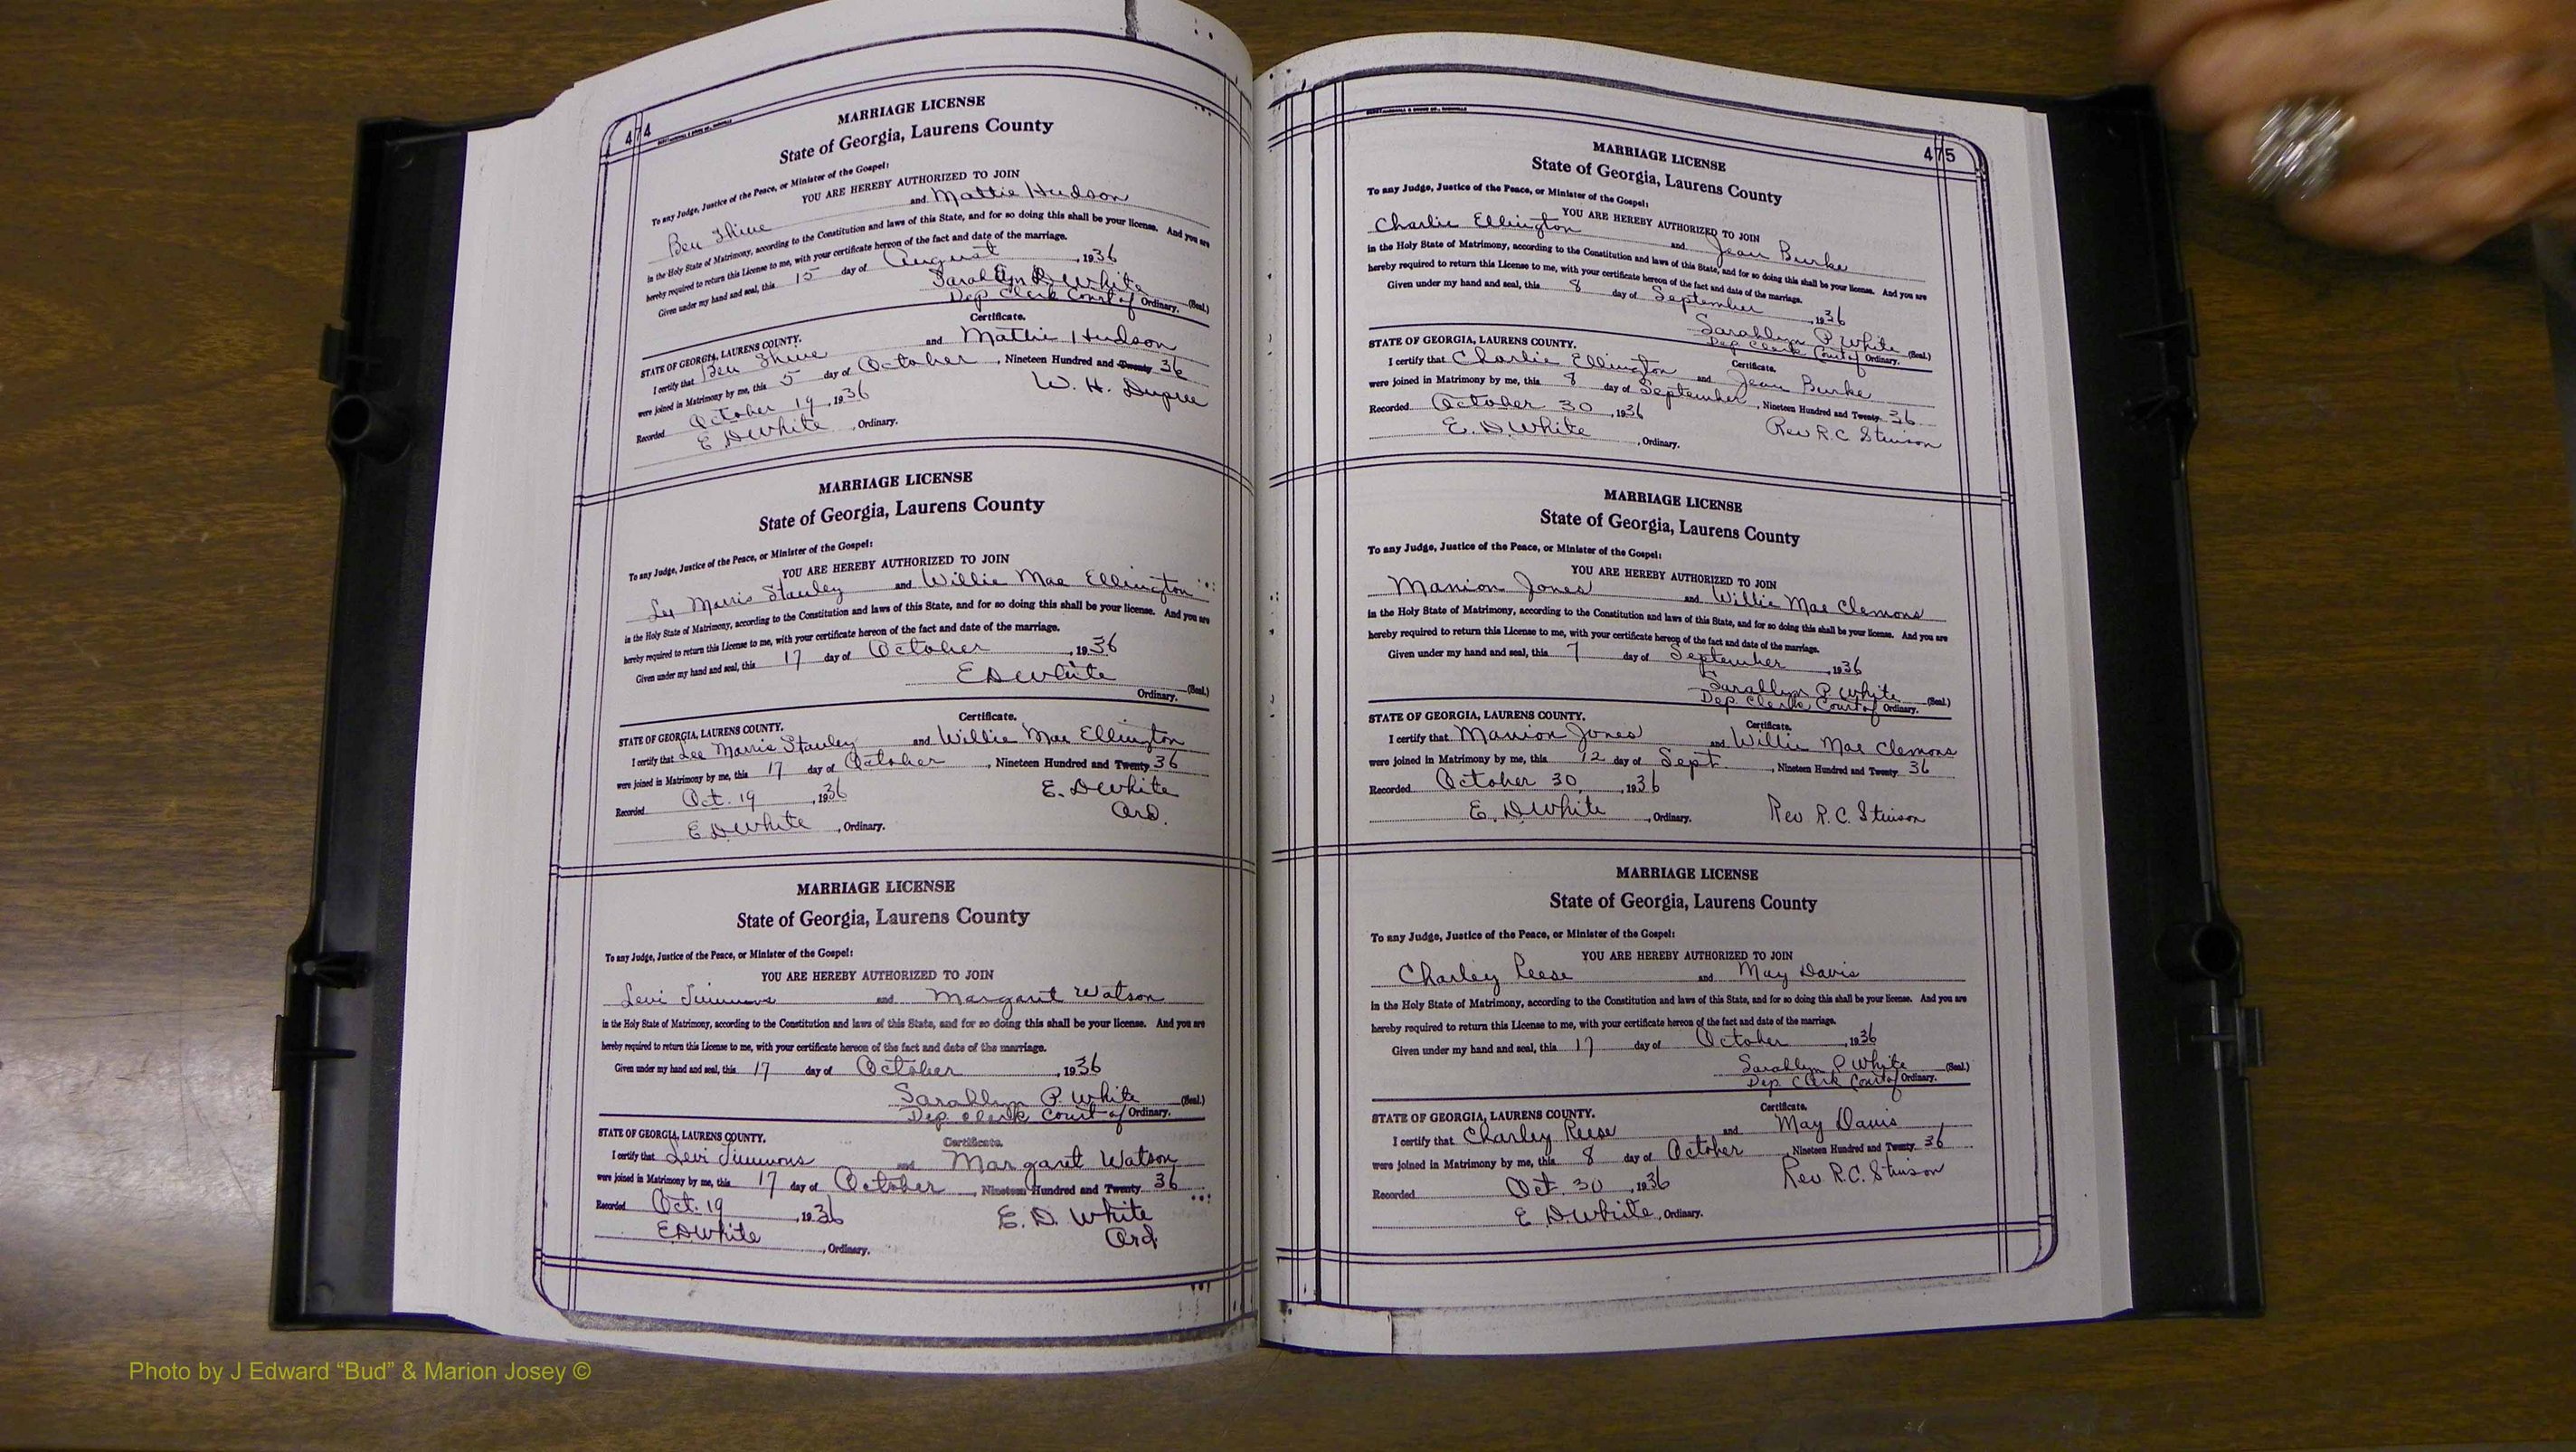 474
MARRIAGE LICENSE
State of Georgia, Laurens County
To any Judge, Justice of the Peace, or Minister of the Gospel:
YOU ARE HEREBY AUTHORIZED TO JOIN
Ben Shine and Mattie Hudson
in the Holy State of Matrimony, according to the Constitution and laws of this State, and for so doing this shall be your license. And you are
hereby required to return this License to me, with your certificate hereon of the fact and date of the marriage.
Given under my hand and seal, this 15 day of August, 1936
Sarahlyn P White
Dep Clerk Court of Ordinary. (Seal.)
Certificate.
STATE OF GEORGIA, LAURENS COUNTY.
I certify that Ben Shine and Mattie Hudson
were joined in Matrimony by me, this 5 day of October, Nineteen Hundred and Twenty 36
Recorded October 19, 1936 W. H. Dupree
E D White, Ordinary.
MARRIAGE LICENSE
State of Georgia, Laurens County
To any Judge, Justice of the Peace, or Minister of the Gospel:
YOU ARE HEREBY AUTHORIZED TO JOIN
Lee Morris Stanley and Willie Mae Ellington
in the Holy State of Matrimony, according to the Constitution and laws of this State, and for so doing this shall be your license. And you are
hereby required to return this License to me, with your certificate hereon of the fact and date of the marriage.
Given under my hand and seal, this 17 day of October, 1936
E D White
Ordinary. (Seal.)
Certificate.
STATE OF GEORGIA, LAURENS COUNTY.
I certify that Lee Morris Stanley and Willie Mae Ellington
were joined in Matrimony by me, this 17 day of October, Nineteen Hundred and Twenty 36
Recorded Oct. 19, 1936 E. D White
E D White, Ordinary. Ord.
MARRIAGE LICENSE
State of Georgia, Laurens County
To any Judge, Justice of the Peace, or Minister of the Gospel:
YOU ARE HEREBY AUTHORIZED TO JOIN
Levi Simmons and Margaret Watson
in the Holy State of Matrimony, according to the Constitution and laws of this State, and for so doing this shall be your license. And you are
hereby required to return this License to me, with your certificate hereon of the fact and date of the marriage.
Given under my hand and seal, this 17 day of October, 1936
Sarahlyn P White (Seal.)
Dep. Clerk Court of Ordinary.
Certificate.
STATE OF GEORGIA, LAURENS COUNTY.
I certify that Levi Simmons and Margaret Watson
were joined in Matrimony by me, this 17 day of October, Nineteen Hundred and Twenty 36
Recorded Oct. 19, 1936 E. D. White
E D White, Ordinary. Ord.
475
MARRIAGE LICENSE
State of Georgia, Laurens County
To any Judge, Justice of the Peace, or Minister of the Gospel:
YOU ARE HEREBY AUTHORIZED TO JOIN
Charlie Ellington and Jean Burke
in the Holy State of Matrimony, according to the Constitution and laws of this State, and for so doing this shall be your license. And you are
hereby required to return this License to me, with your certificate hereon of the fact and date of the marriage.
Given under my hand and seal, this 8 day of September, 1936
Sarahlyn P White
Dep Clerk Court of Ordinary. (Seal.)
Certificate.
STATE OF GEORGIA, LAURENS COUNTY.
I certify that Charlie Ellington and Jean Burke
were joined in Matrimony by me, this 8 day of September, Nineteen Hundred and Twenty 36
Recorded October 30, 1936 Rev R. C Stinson
E. D. White, Ordinary.
MARRIAGE LICENSE
State of Georgia, Laurens County
To any Judge, Justice of the Peace, or Minister of the Gospel:
YOU ARE HEREBY AUTHORIZED TO JOIN
Manion Jones and Willie Mae Clemons
in the Holy State of Matrimony, according to the Constitution and laws of this State, and for so doing this shall be your license. And you are
hereby required to return this License to me, with your certificate hereon of the fact and date of the marriage.
Given under my hand and seal, this 7 day of September, 1936
Sarahlyn P White (Seal.)
Dep. Clerk, Court of Ordinary.
Certificate.
STATE OF GEORGIA, LAURENS COUNTY.
I certify that Manion Jones and Willie Mae Clemons
were joined in Matrimony by me, this 12 day of Sept., Nineteen Hundred and Twenty 36
Recorded October 30, 1936
E. D. White, Ordinary. Rev R. C. Stinson
MARRIAGE LICENSE
State of Georgia, Laurens County
To any Judge, Justice of the Peace, or Minister of the Gospel:
YOU ARE HEREBY AUTHORIZED TO JOIN
Charley Reese and May Davis
in the Holy State of Matrimony, according to the Constitution and laws of this State, and for so doing this shall be your license. And you are
hereby required to return this License to me, with your certificate hereon of the fact and date of the marriage.
Given under my hand and seal, this 17 day of October, 1936
Sarahlyn P White (Seal.)
Dep. Clerk Court of Ordinary.
Certificate.
STATE OF GEORGIA, LAURENS COUNTY.
I certify that Charley Reese and May Davis
were joined in Matrimony by me, this 8 day of October, Nineteen Hundred and Twenty 36
Recorded Oct. 30, 1936 Rev R.C. Stinson
E D. White, Ordinary.
Photo by J Edward “Bud” & Marion Josey ©